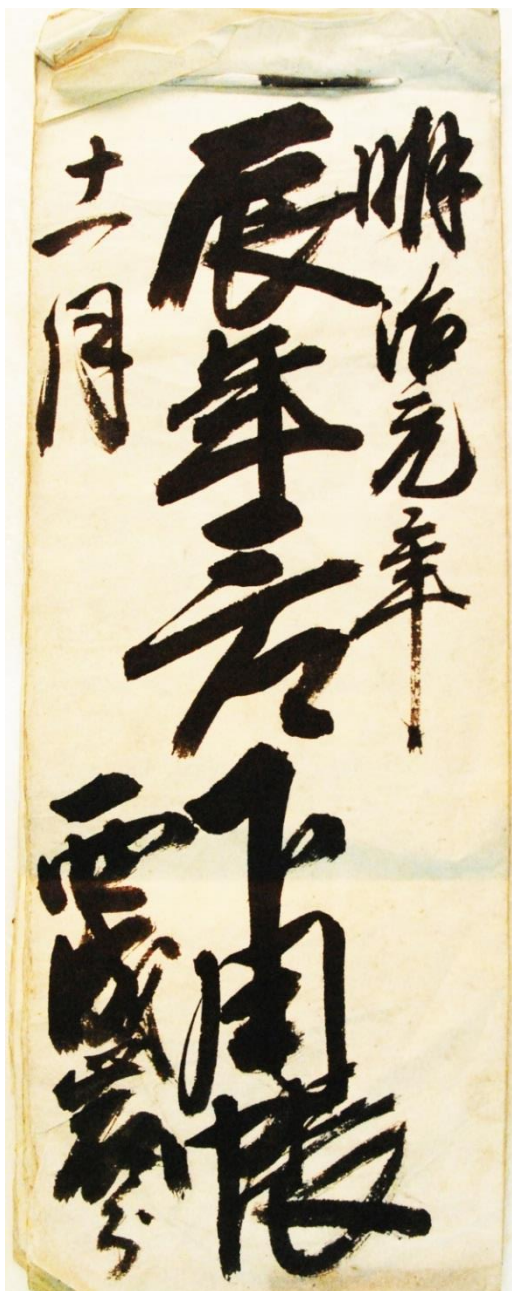 明治元年
辰年下用帳
十一月
西